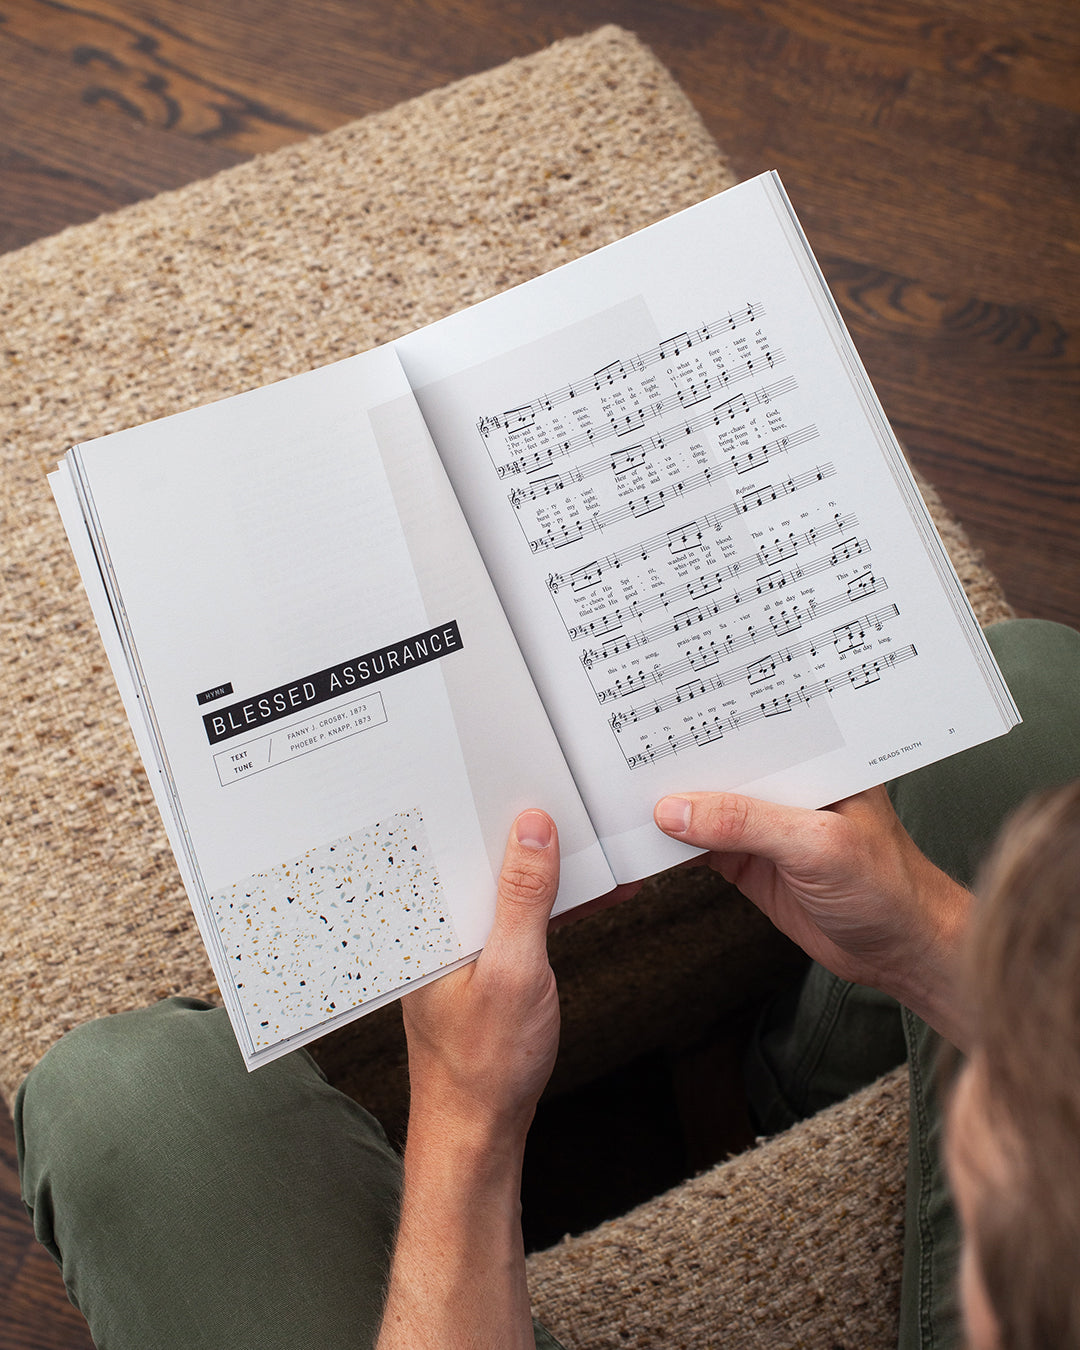 HYMN
BLESSED ASSURANCE
TEXT / FANNY J. CROSBY, 1873
TUNE PHOEBE P. KNAPP, 1873
1 Bles - sed as - su - rance, Je - sus is mine! O what a fore - taste of
2 Per - fect sub - mis - sion, per - fect de - light, vi - sions of rap - ture now
3 Per - fect sub - mis - sion, all is at rest, I in my Sa - vior am
glo - ry di - vine! Heir of sal - va - tion, pur - chase of God,
burst on my sight; An - gels des - cen - ding, bring from a - bove
hap - py and blest, watch - ing and wait - ing, look - ing a - bove,
Refrain
born of His Spi - rit, washed in His blood. This is my sto - ry,
e - choes of mer - cy, whis - pers of love.
filled with His good - ness, lost in His love.
this is my song, prais - ing my Sa - vior all the day long, This is my
sto - ry, this is my song, prais - ing my Sa - vior all the day long.
HE READS TRUTH 31